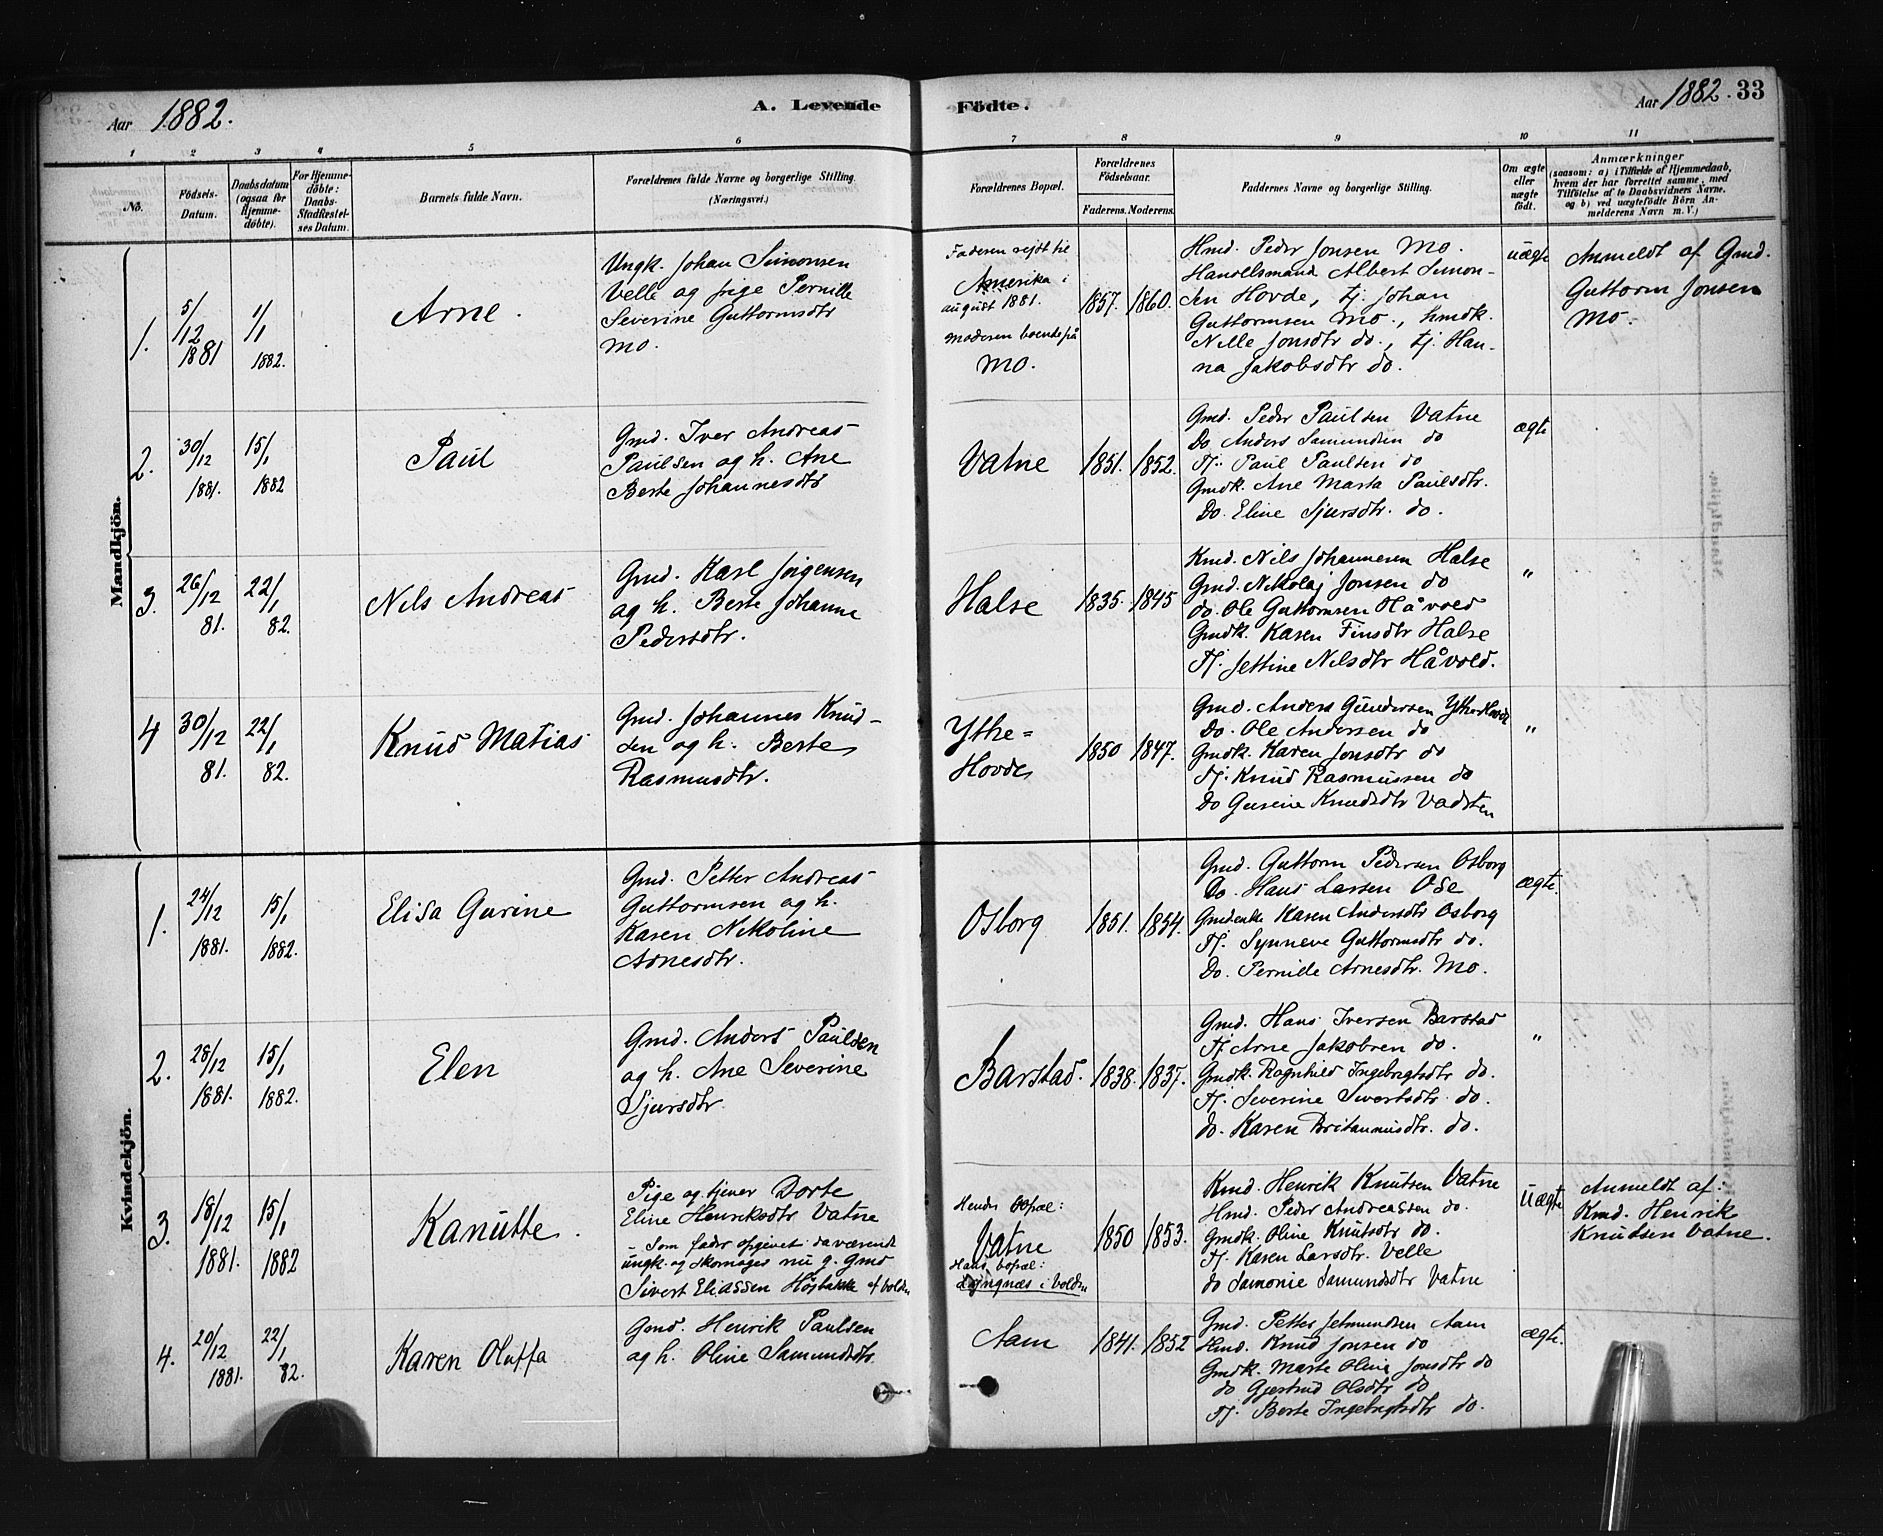 Aar 1882.
A. Levende
Födte.
Aar 1882. 33
1 2 3 4 5 6 7 8 9 10 11
No.
Födsels-
Datum.
Daabsdatum
(ogsaa for
Hjemme-
döbte).
For Hjemme-
döbte:
Daabs-
Stadfæstel-
ses Datum.
Barnets fulde Navn.
Forældrenes fulde Navne og borgerlige Stilling.
(Næringsvei.)
Forældrenes Bopæl.
Forældrenes
Födselsaar.
Faderens. Moderens.
Faddernes Navne og borgerlige Stilling.
Om ægte
eller
uægte
födt.
Anmærkninger
(saasom: a) i Tilfælde af Hjemmedaab,
hvem der har forrettet samme, med
Tilföielse af to Daabsvidners Navne,
og b) ved uægtefödte Börn An-
melderens Navn m. V.)
Mandkjön.
1.
5/12
1881
1/1
1882.
Arne.
Ungk. Johan Simonsen
Velle og pige Pernille
Severine Guttormsdtr
Mo.
Faderen rejst til
Amerika i
august 1881.
Moderen boende på
Mo.
1857. 1860.
Hmd. Peder Jonsen Mo.
Handelsmand Albert Simon-
sen Hovde, tj. Johan
Guttormsen Mo., hmdk.
Nille Jonsdtr do., tj. Han-
na Jakobsdtr do.
uægte
Anmeldt af Gmd.
Guttorm Jonsen
Mo.
2.
30/12
1881.
15/1
1882
Paul
Gmd. Iver Andreas
Paulsen og h. Ane
Berte Johannesdtr
Vatne
1851. 1852.
Gmd. Peder Paulsen Vatne
Do Anders Samundsen do
Tj. Paul Paulsen do
Gmdk. Ane Marta Paulsdtr.
Do. Eline Sjursdtr. do.
ægte
3.
26/12
81.
22/1
82.
Nils Andreas
Gmd. Karl Jørgensen
og h. Berte Johanne
Pedersdtr.
Halse
1835. 1845
Kmd. Nils Johannesen Halse
Gmd. Nikolaj Jonsen do
do. Ole Guttormsen Håvold
Gmdk. Karen Finsdtr Halse
Tj. Jettine Nilsdtr Håvold.
"
4
30/12
81.
22/1
82.
Knud Matias
Gmd. Johannes Knud-
sen og h. Berte
Rasmusdtr.
Ytre=
Hovde
1850 1847.
Gmd. Anders Gundersen Ytrehovde
Do. Ole Andersen do
Gmdk. Karen Jonsdtr do
Tj. Knud Rasmussen do
Do Gurine Knudsdtr Vadsten
"
Kvindekjön.
1.
24/12
1881.
15/1
1882.
Elisa Gurine
Gmd. Petter Andreas
Guttormsen og h.
Karen Nikoline
Arnesdtr.
Osborg
1851. 1854.
Gmd. Guttorm Pedersen Osborg
Do. Hans Larsen Ose
Gmdenke Karen Andersdtr Osborg
Tj. Synneve Guttormsdtr do.
Do. Pernille Arnesdtr. Mo.
ægte.
2.
28/12
1881.
15/1
1882.
Elen
Gmd. Anders Paulsen
og h. Ane Severine
Sjursdtr.
Barstad.
1838. 1837.
Gmd. Hans Iversen Barstad
Tj Arne Jakobsen do.
Gmdk. Ragnhild Ingebrigtsdtr do.
Tj. Severine Sivertsdtr. do.
do. Karen Britanusdtr. do.
"
3.
18/12
1881.
15/1
1882
Kanutte.
Pige og tjener Dorte
Eline Henriksdtr Vatne
– Som fader opgivet: daværende
ungk. og skomager nu g. Gmd
Sivert Eliassen Højbakke af Volden
Hendes Bopæl:
Vatne
Hans bopæl:
i Volden
1850 1853.
Kmd. Henrik Knutsen Vatne
Hmd. Peder Andreassen do.
Gmdk. Oline Knutsdtr do.
Tj. Karen Larsdtr. Velle
do Samonie Samundsdtr Vatne
Uægte
Anmeldt af:
Kmd. Henrik
Knudsen Vatne.
4.
20/12
1881.
22/1
82.
Karen Oluffa
Gmd. Henrik Paulsen
og h. Oline Samundsdtr.
Aam
1841. 1852
Gmd. Petter Jetmundsen Aam
Hmd. Knud Jonsen do
Gmdk. Marte Oline Jonsdtr do
do Gjertrud Olsdtr do
Tj. Berte Ingebrigtsdtr do.
ægte.